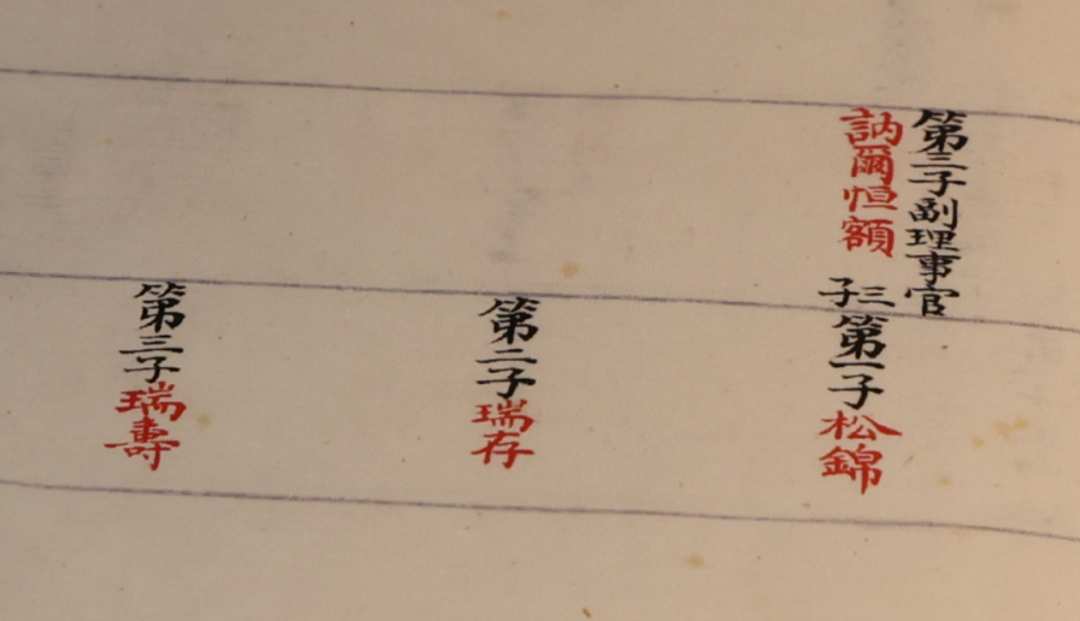 第三子副理事官
訥爾恒額
三子
第一子松錦
第二子瑞存
第三子瑞壽